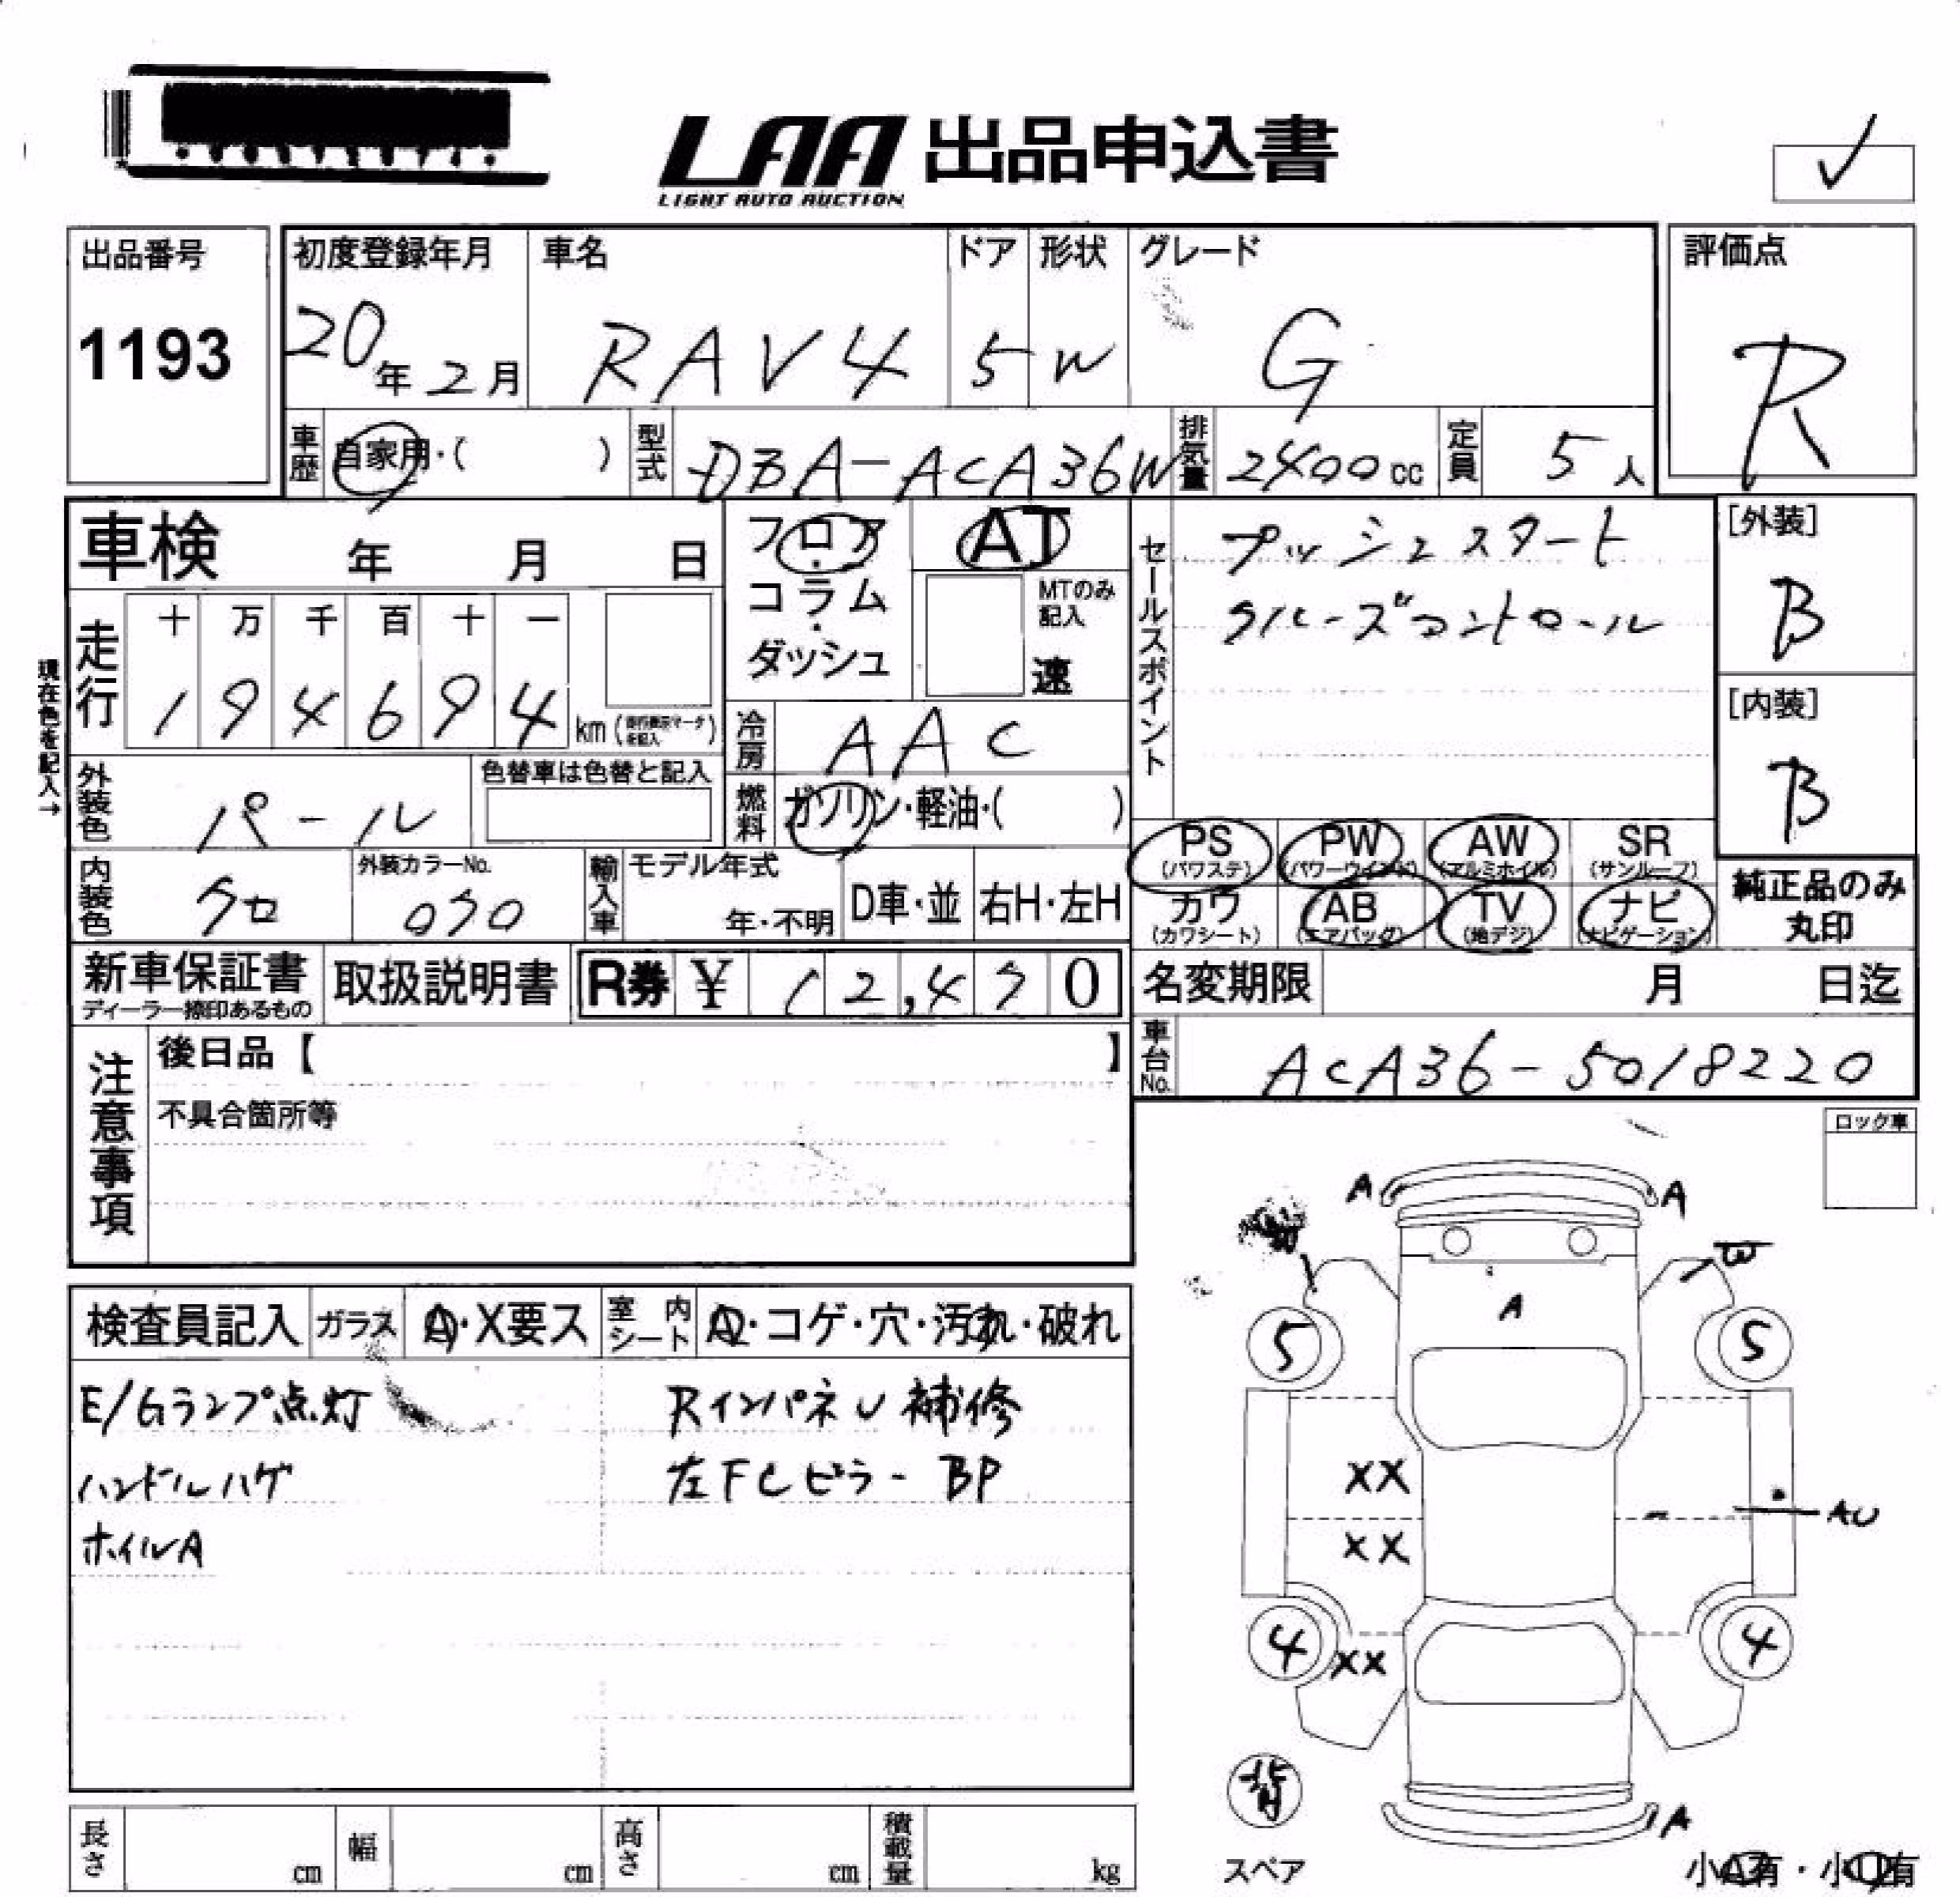 LAA 出品申込書
LIGHT AUTO AUCTION
出品番号
1193
初度登録年月
20年2月
車名
RAV4
ドア
5
形状
W
グレード
G
評価点
R
車歴
自家用・( )
型式
DBA-ACA36W
排気量
2400cc
定員
5人
車検 年 月 日
フロア・コラム・ダッシュ
AT
MTのみ記入
速
セールスポイント
プッシュスタート
クルーズコントロール
[外装]
B
[内装]
B
現在色を記入→
走行
十 万 千 百 十 一
194694 km
冷房
AAC
外装色
パール
色替車は色替と記入
燃料
ガソリン・軽油・( )
PS (パワステ)
PW (パワーウインド)
AW (アルミホイル)
SR (サンルーフ)
カワ (カワシート)
AB (エアバッグ)
TV (地デジ)
ナビ (ナビゲーション)
純正品のみ丸印
内装色
クロ
外装カラーNo.
070
輸入車
モデル年式
年・不明
D車・並
右H・左H
新車保証書
取扱説明書
R券 ¥ 12,470
名変期限 月 日迄
車台No.
ACA36-5018220
注意事項
後日品【 】
不具合箇所等
ロック車
検査員記入
ガラス
A・X要ス
室内シート
・コゲ・穴・汚れ・破れ
E/Gランプ点灯
ハンドルハゲ
ホイルA
RインパネU補修
左FCピラーBP
A
A
W
A
5
5
XX
XX
AU
4
XX
4
背
A
スペア
長さ cm
幅 cm
高さ cm
積載量 kg